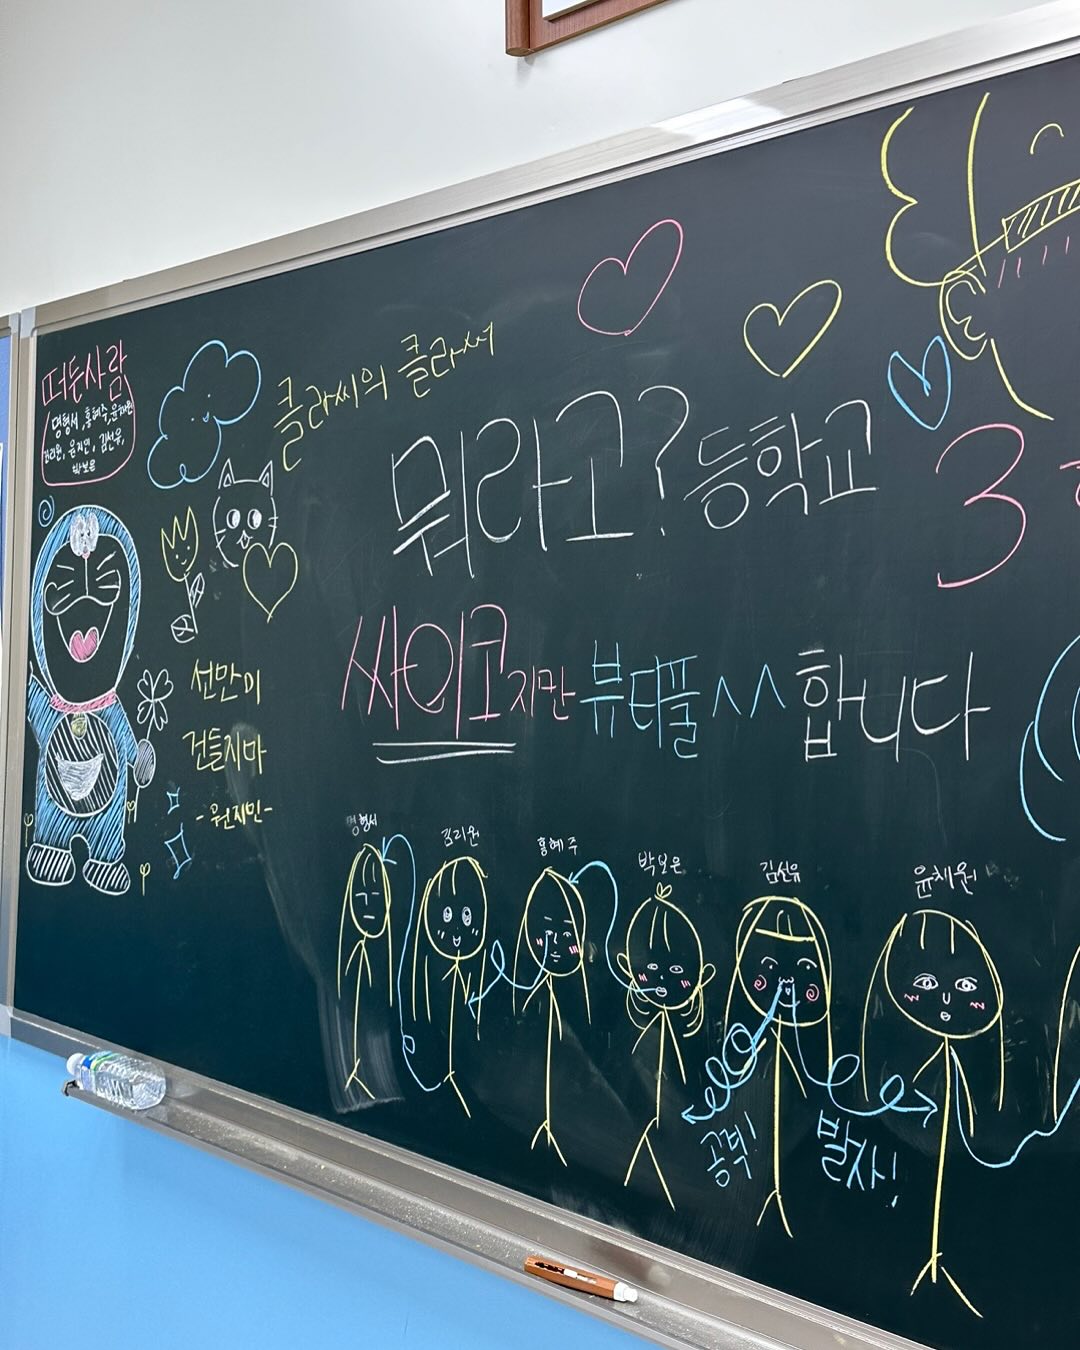 떠든사람
명형서, 홍혜주, 윤채원
김리원, 윤지민, 김선유,
박보은
클라씨의 클라쓰
뭐라고? 등학교 3
싸이코지만 뷰티플^^ 합니다
선만이
건들지마
-원지민-
명형서
김리원
홍혜주
박보은
김선유
윤채원
공격!
발사!